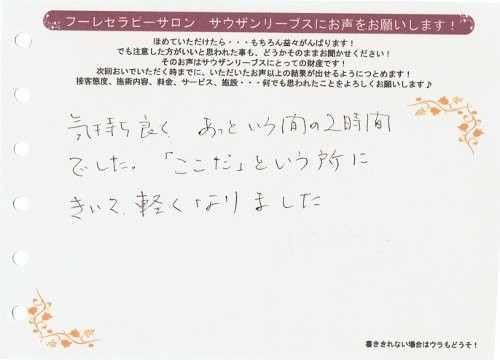 フーレセラピーサロン　サウザンリーブスにお声をお願いします！
ほめていただけたら・・・もちろん益々がんばります！
でも注意した方がいいと思われた事も、どうかそのままお聞かせください！
そのお声はサウザンリーブスにとっての財産です！
次回おいでいただく時までに、いただいたお声以上の結果が出せるようにつとめます！
接客態度、施術内容、料金、サービス、施設・・・何でも思われたことをよろしくお願いします♪
気持ち良く、あっという間の2時間
でした。「ここだ」という所に
きいて、軽くなりました
書ききれない場合はウラもどうぞ！